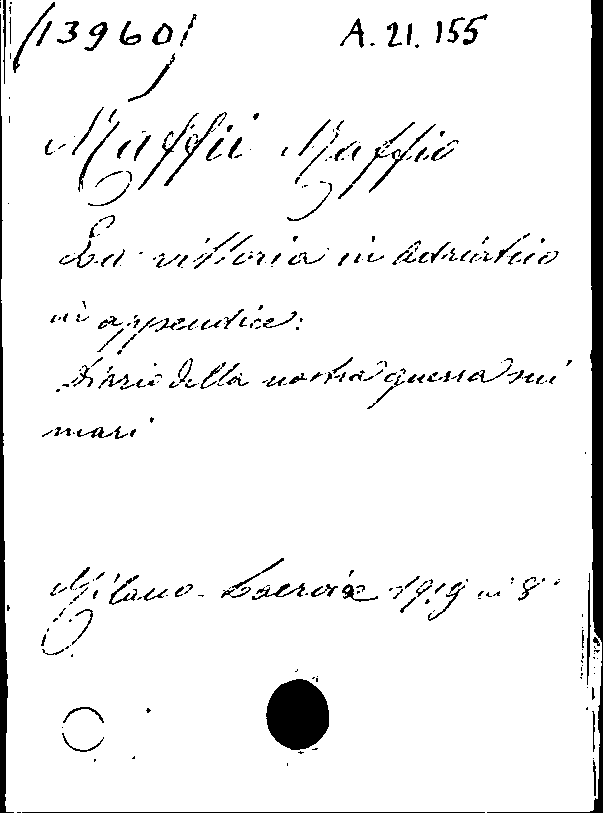 (13960) A. 21. 155
Maffii Maffio
La vittoria in Adriatico
in appendice:
Diario della nostra guerra sui
mari
Milano - Lacroix 1919 in 8°